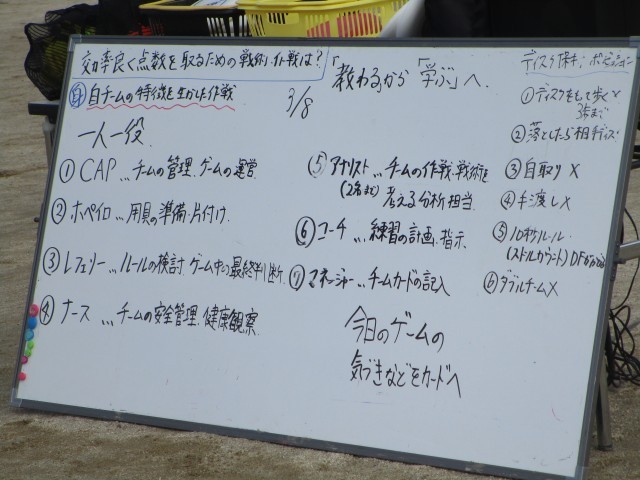 効率良く点数を取るための戦術・作戦は?
「教わる」から「学ぶ」へ.
㋱自チームの特徴を生かした作戦
3/8
一人一役.
①CAP…チームの管理.ゲームの運営.
②ホペイロ…用具の準備.片付け.
③レフェリー…ルールの検討.ゲーム中の最終判断.
④ナース…チームの安全管理.健康観察.
⑤アナリスト…チームの作戦.戦術を
(2名まで)考える分析担当.
⑥コーチ…練習の計画.指示.
⑦マネージャー…チームカードの記入
今日のゲームの
気づきなどをカードへ
①ディスクをもって歩く×
3歩まで
②落としたら相手ディスク
③自取り×
④手渡し×
⑤10秒ルール.
(ストールカウント)DFが
⑥ダブルチーム×